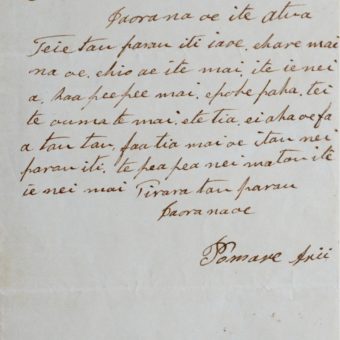 Iaorana oe ite Atua
Teie tau parau iti iaoe, ehare mai
na oe, ehio oe ite mai, ite ie nei
a, haa peepee mai, epohe paha, tei
te ouma te mai, ete tia, ei aha oe fa
a tau tau, faa tia mai oe itau nei
parau iti, te pea pea nei matou ite
ie nei mai Tirara tau parau
Iaorana oe
Pomare Arii